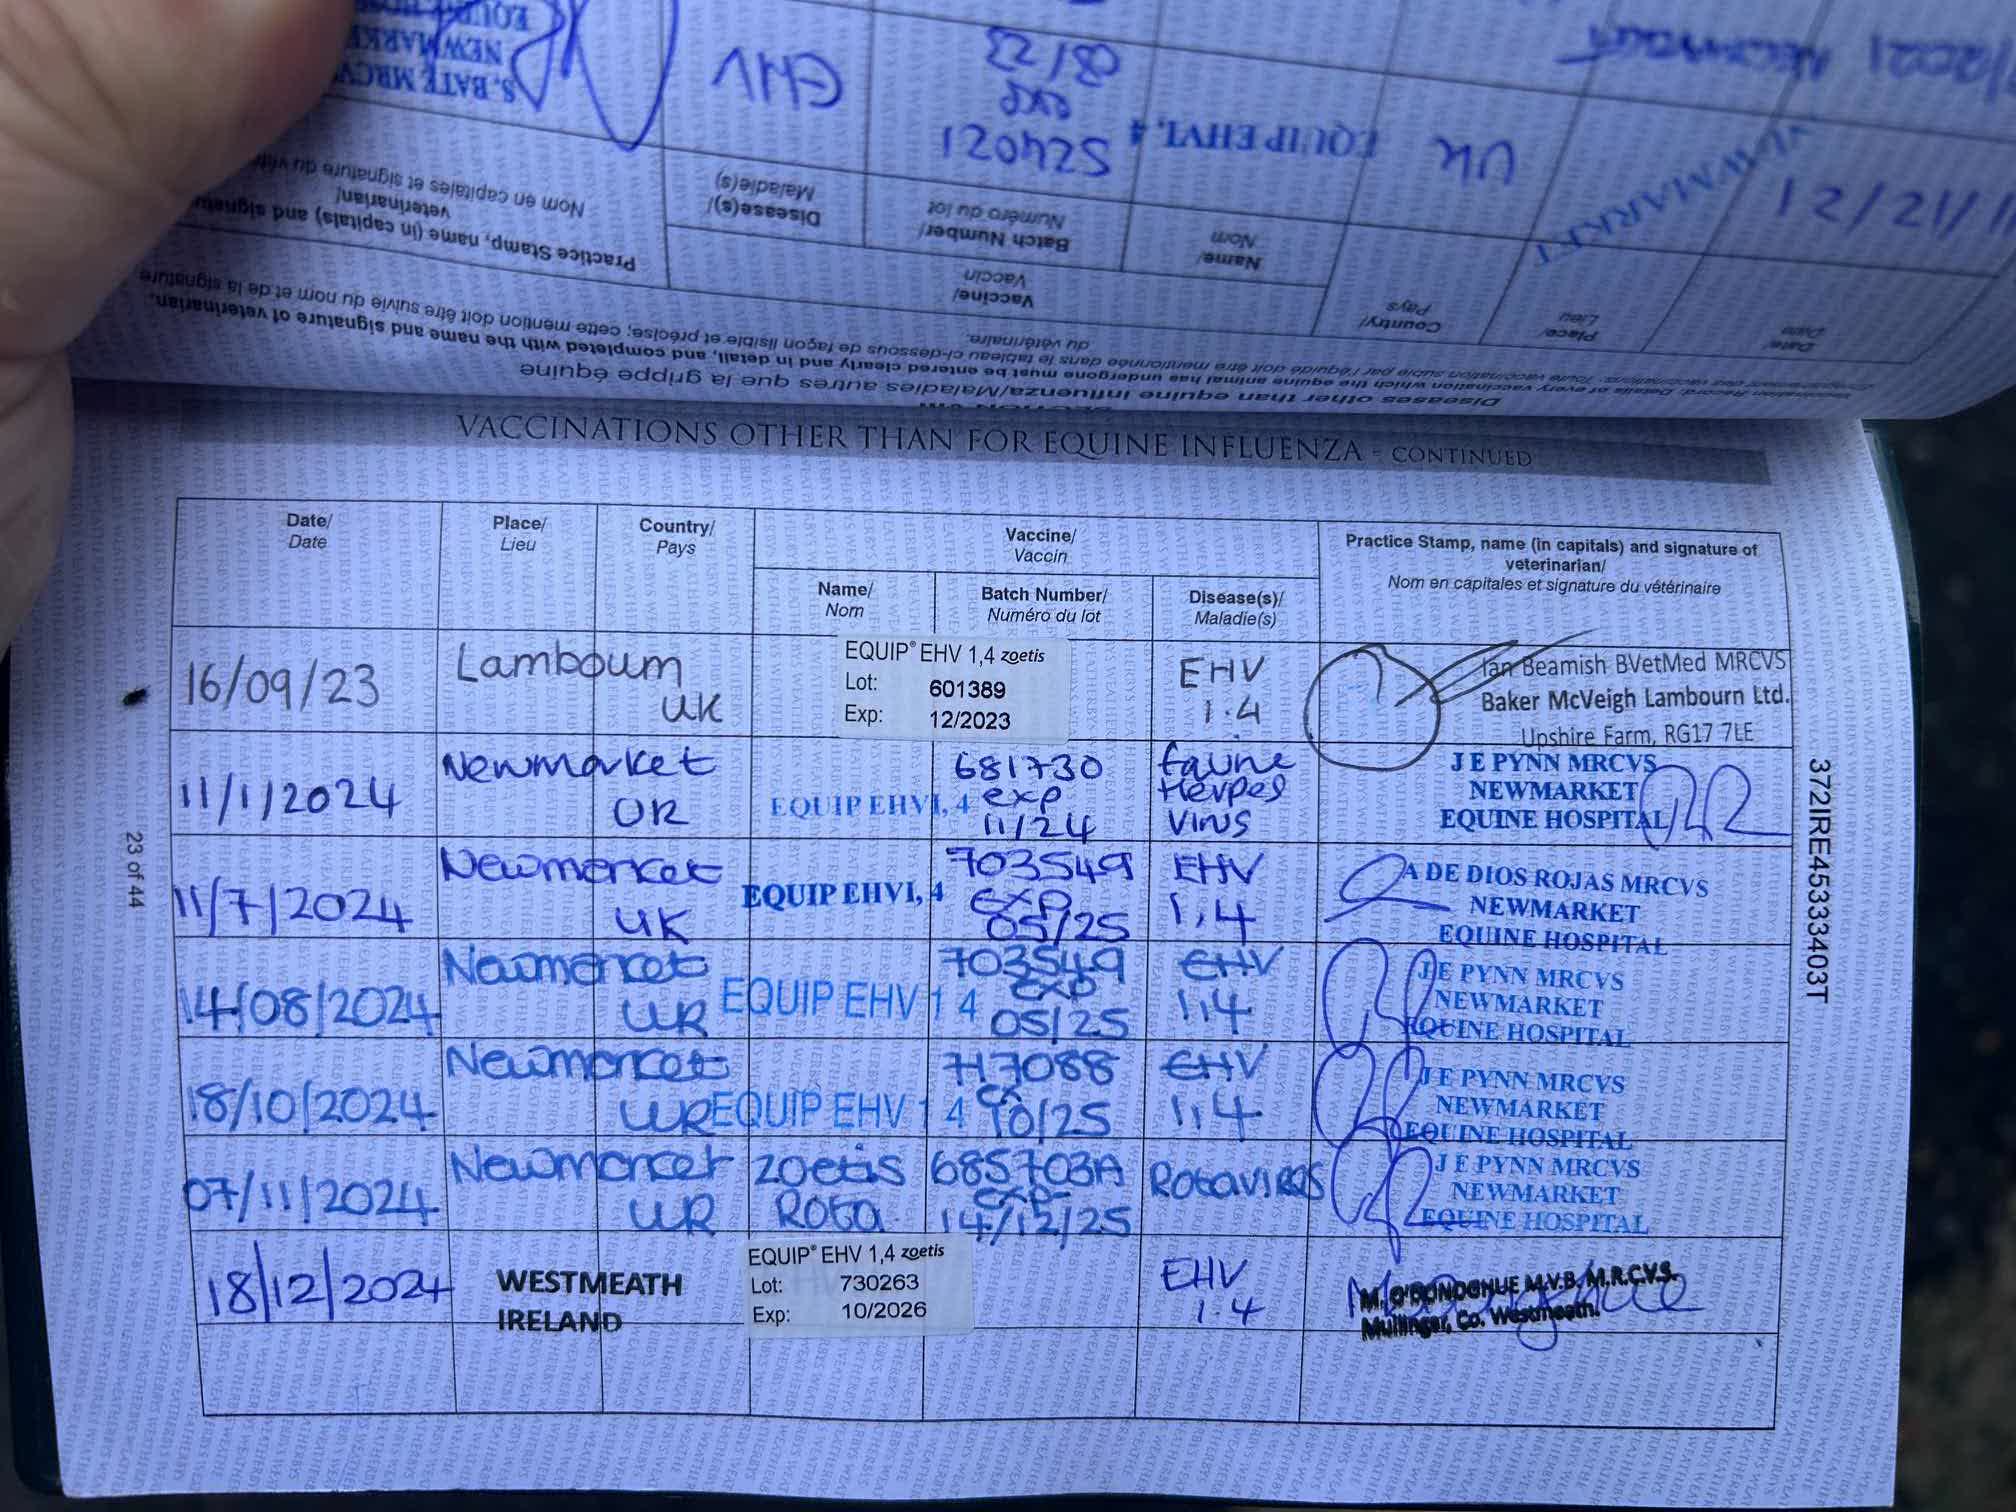 S. BATE MRCVS
NEWMARKET
EHV
524021
exp
08/23
EQUIP EHV1, 4
UK
NEWMARKET
12/21/1
Practice Stamp, name (in capitals) and
veterinarian/
Nom en capitales et signature du
Disease(s)/
Maladie(s)
Batch Number/
Numéro du lot
Name/
Nom
Vaccine/
Vaccin
Country/
Pays
Place/
Lieu
Date/
Date
Vaccination Record: Details of every vaccination which the equine animal has undergone must be entered clearly and in detail, and completed with the name and signature of veterinarian.
Enregistrement des vaccinations: Toute vaccination subie par l'équidé doit être mentionnée dans le tableau ci-dessous de façon lisible et précise; cette mention doit être suivie du nom et de la signature
du vétérinaire.
Diseases other than equine influenza/Maladies autres que la grippe équine
VACCINATIONS OTHER THAN FOR EQUINE INFLUENZA - CONTINUED
Date/
Date
Place/
Lieu
Country/
Pays
Vaccine/
Vaccin
Name/
Nom
Batch Number/
Numéro du lot
Disease(s)/
Maladie(s)
Practice Stamp, name (in capitals) and signature of
veterinarian/
Nom en capitales et signature du vétérinaire
16/09/23
Lambourn
UK
EQUIP® EHV 1,4 zoetis
Lot: 601389
Exp: 12/2023
EHV
1.4
Ian Beamish BVetMed MRCVS
Baker McVeigh Lambourn Ltd.
Upshire Farm, RG17 7LE
11/1/2024
Newmarket
UK
EQUIP EHV1, 4
681730
exp
11/24
Equine
Herpes
Virus
J E PYNN MRCVS
NEWMARKET
EQUINE HOSPITAL
11/7/2024
Newmarket
UK
EQUIP EHV1, 4
703549
exp
05/25
EHV
1,4
A DE DIOS ROJAS MRCVS
NEWMARKET
EQUINE HOSPITAL
14/08/2024
Newmarket
UK
EQUIP EHV 1 4
703549
exp
05/25
EHV
1,4
J E PYNN MRCVS
NEWMARKET
EQUINE HOSPITAL
18/10/2024
Newmarket
UK
EQUIP EHV 1 4
717088
ex
10/25
EHV
1,4
J E PYNN MRCVS
NEWMARKET
EQUINE HOSPITAL
07/11/2024
Newmarket
UK
Zoetis
Rota
685703A
exp
14/12/25
Rotavirus
J E PYNN MRCVS
NEWMARKET
EQUINE HOSPITAL
18/12/2024
WESTMEATH
IRELAND
EQUIP® EHV 1,4 zoetis
Lot: 730263
Exp: 10/2026
EHV
1.4
M. O'DONOGHUE M.V.B. M.R.C.V.S.
Mullingar, Co. Westmeath.
23 of 44
372IRE45333403T